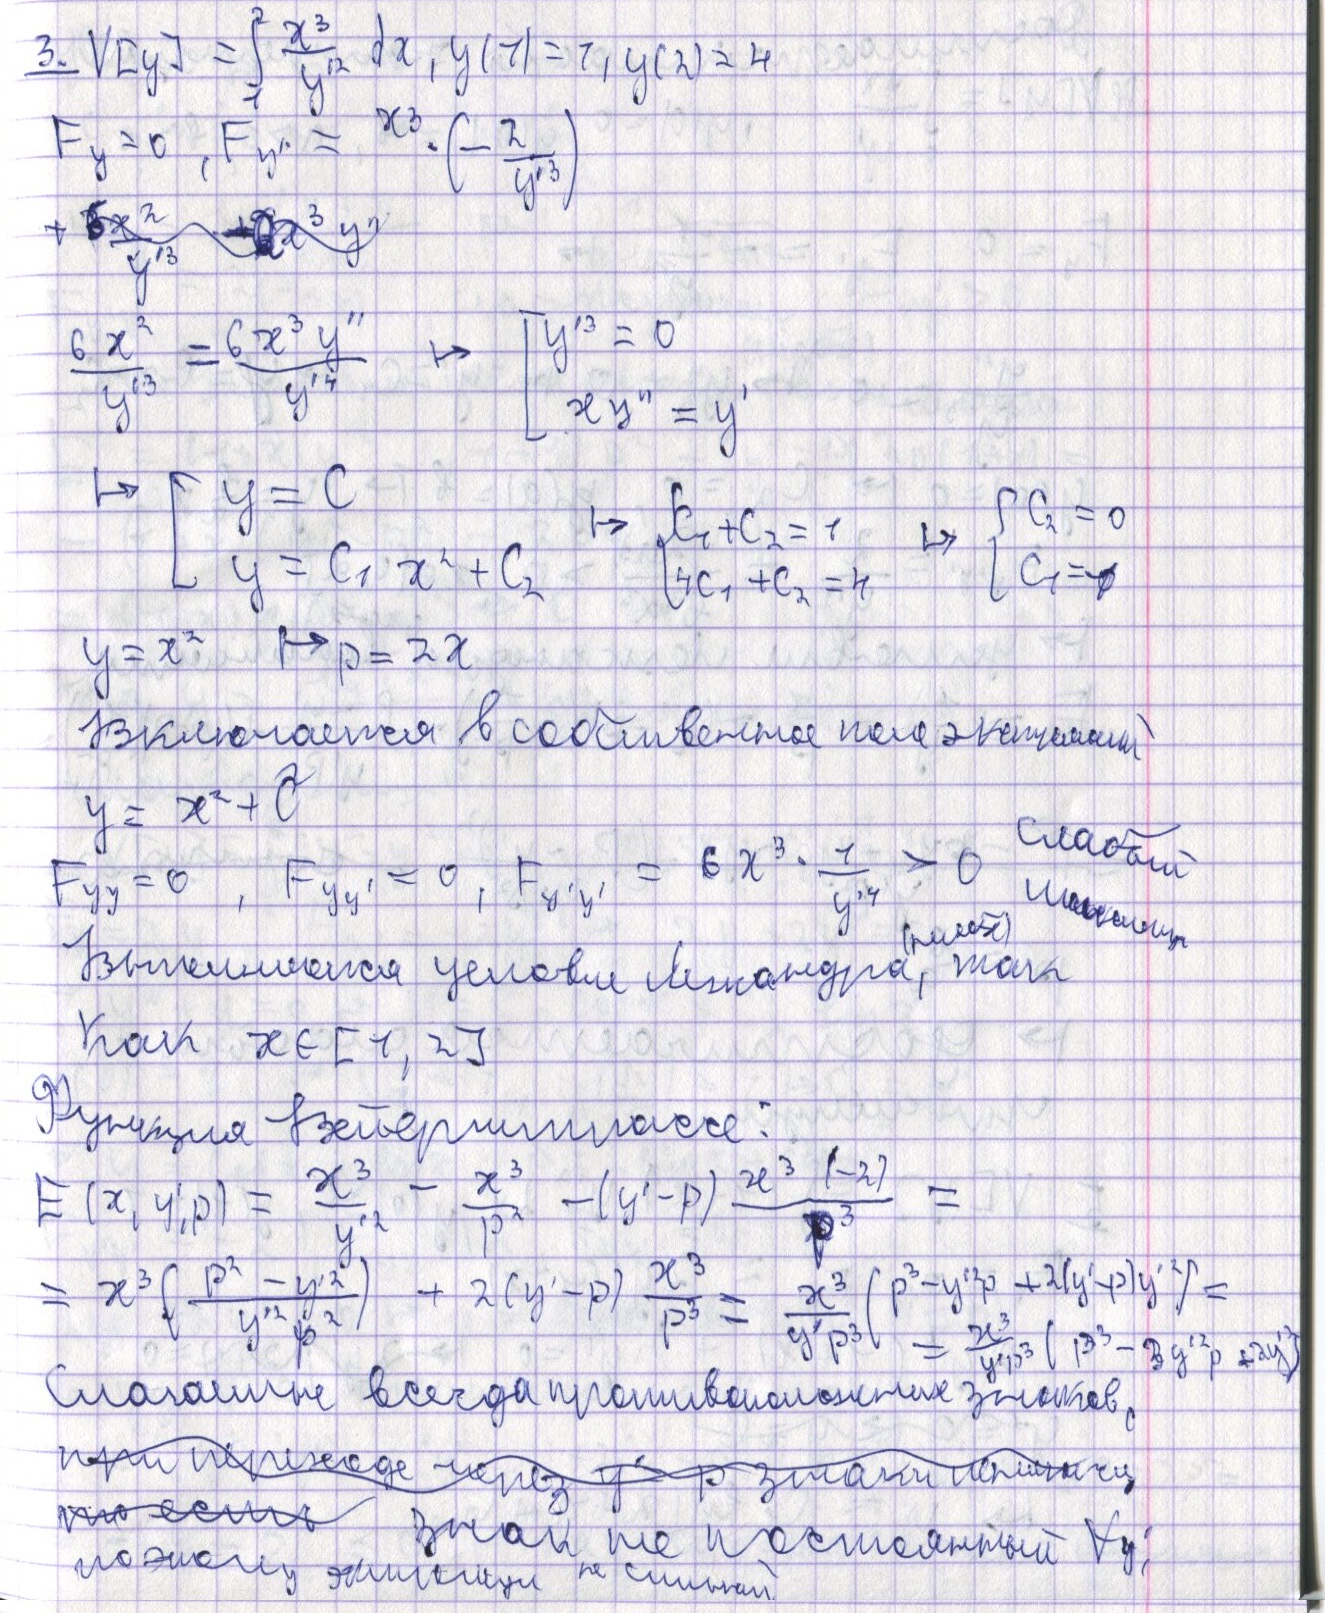 3. V[y] = ∫₁² x³/y'² dx, y(1)=1, y(2)=4
F_y = 0, F_y' = x³·(−2/y'³)
+ 6x²/y'³ x³ y''
6x²/y'³ = 6x³y''/y'⁴ ↦ [ y'³ = 0
xy'' = y'
↦ [ y = C
y = C₁x² + C₂ ↦ { C₁+C₂=1
4C₁+C₂=4 ↦ { C₂=0
C₁=1
y = x² ↦ p = 2x
Включается в собственное поле экстремалей
y = x² + C̃
F_yy = 0, F_yy' = 0, F_y'y' = 6x³·1/y'⁴ > 0 слабый
Выполняется условие Лежандра, так
как x∈[1,2]
Функция Вейерштрасса:
E(x,y',p) = x³/y'² − x³/p² −(y'−p) x³(−2)/p³ =
= x³(p²−y'²/y'²p²) + 2(y'−p) x³/p³ = x³/y'p³(p³−y'²p+2(y'−p)y'²) =
= x³/y'p³(p³−3y'²p+2y'³)
Слагаемые всегда противоположных знаков,
при переходе через y'=p знаки
то есть знак не постоянный ∀y',
поэтому не сильный